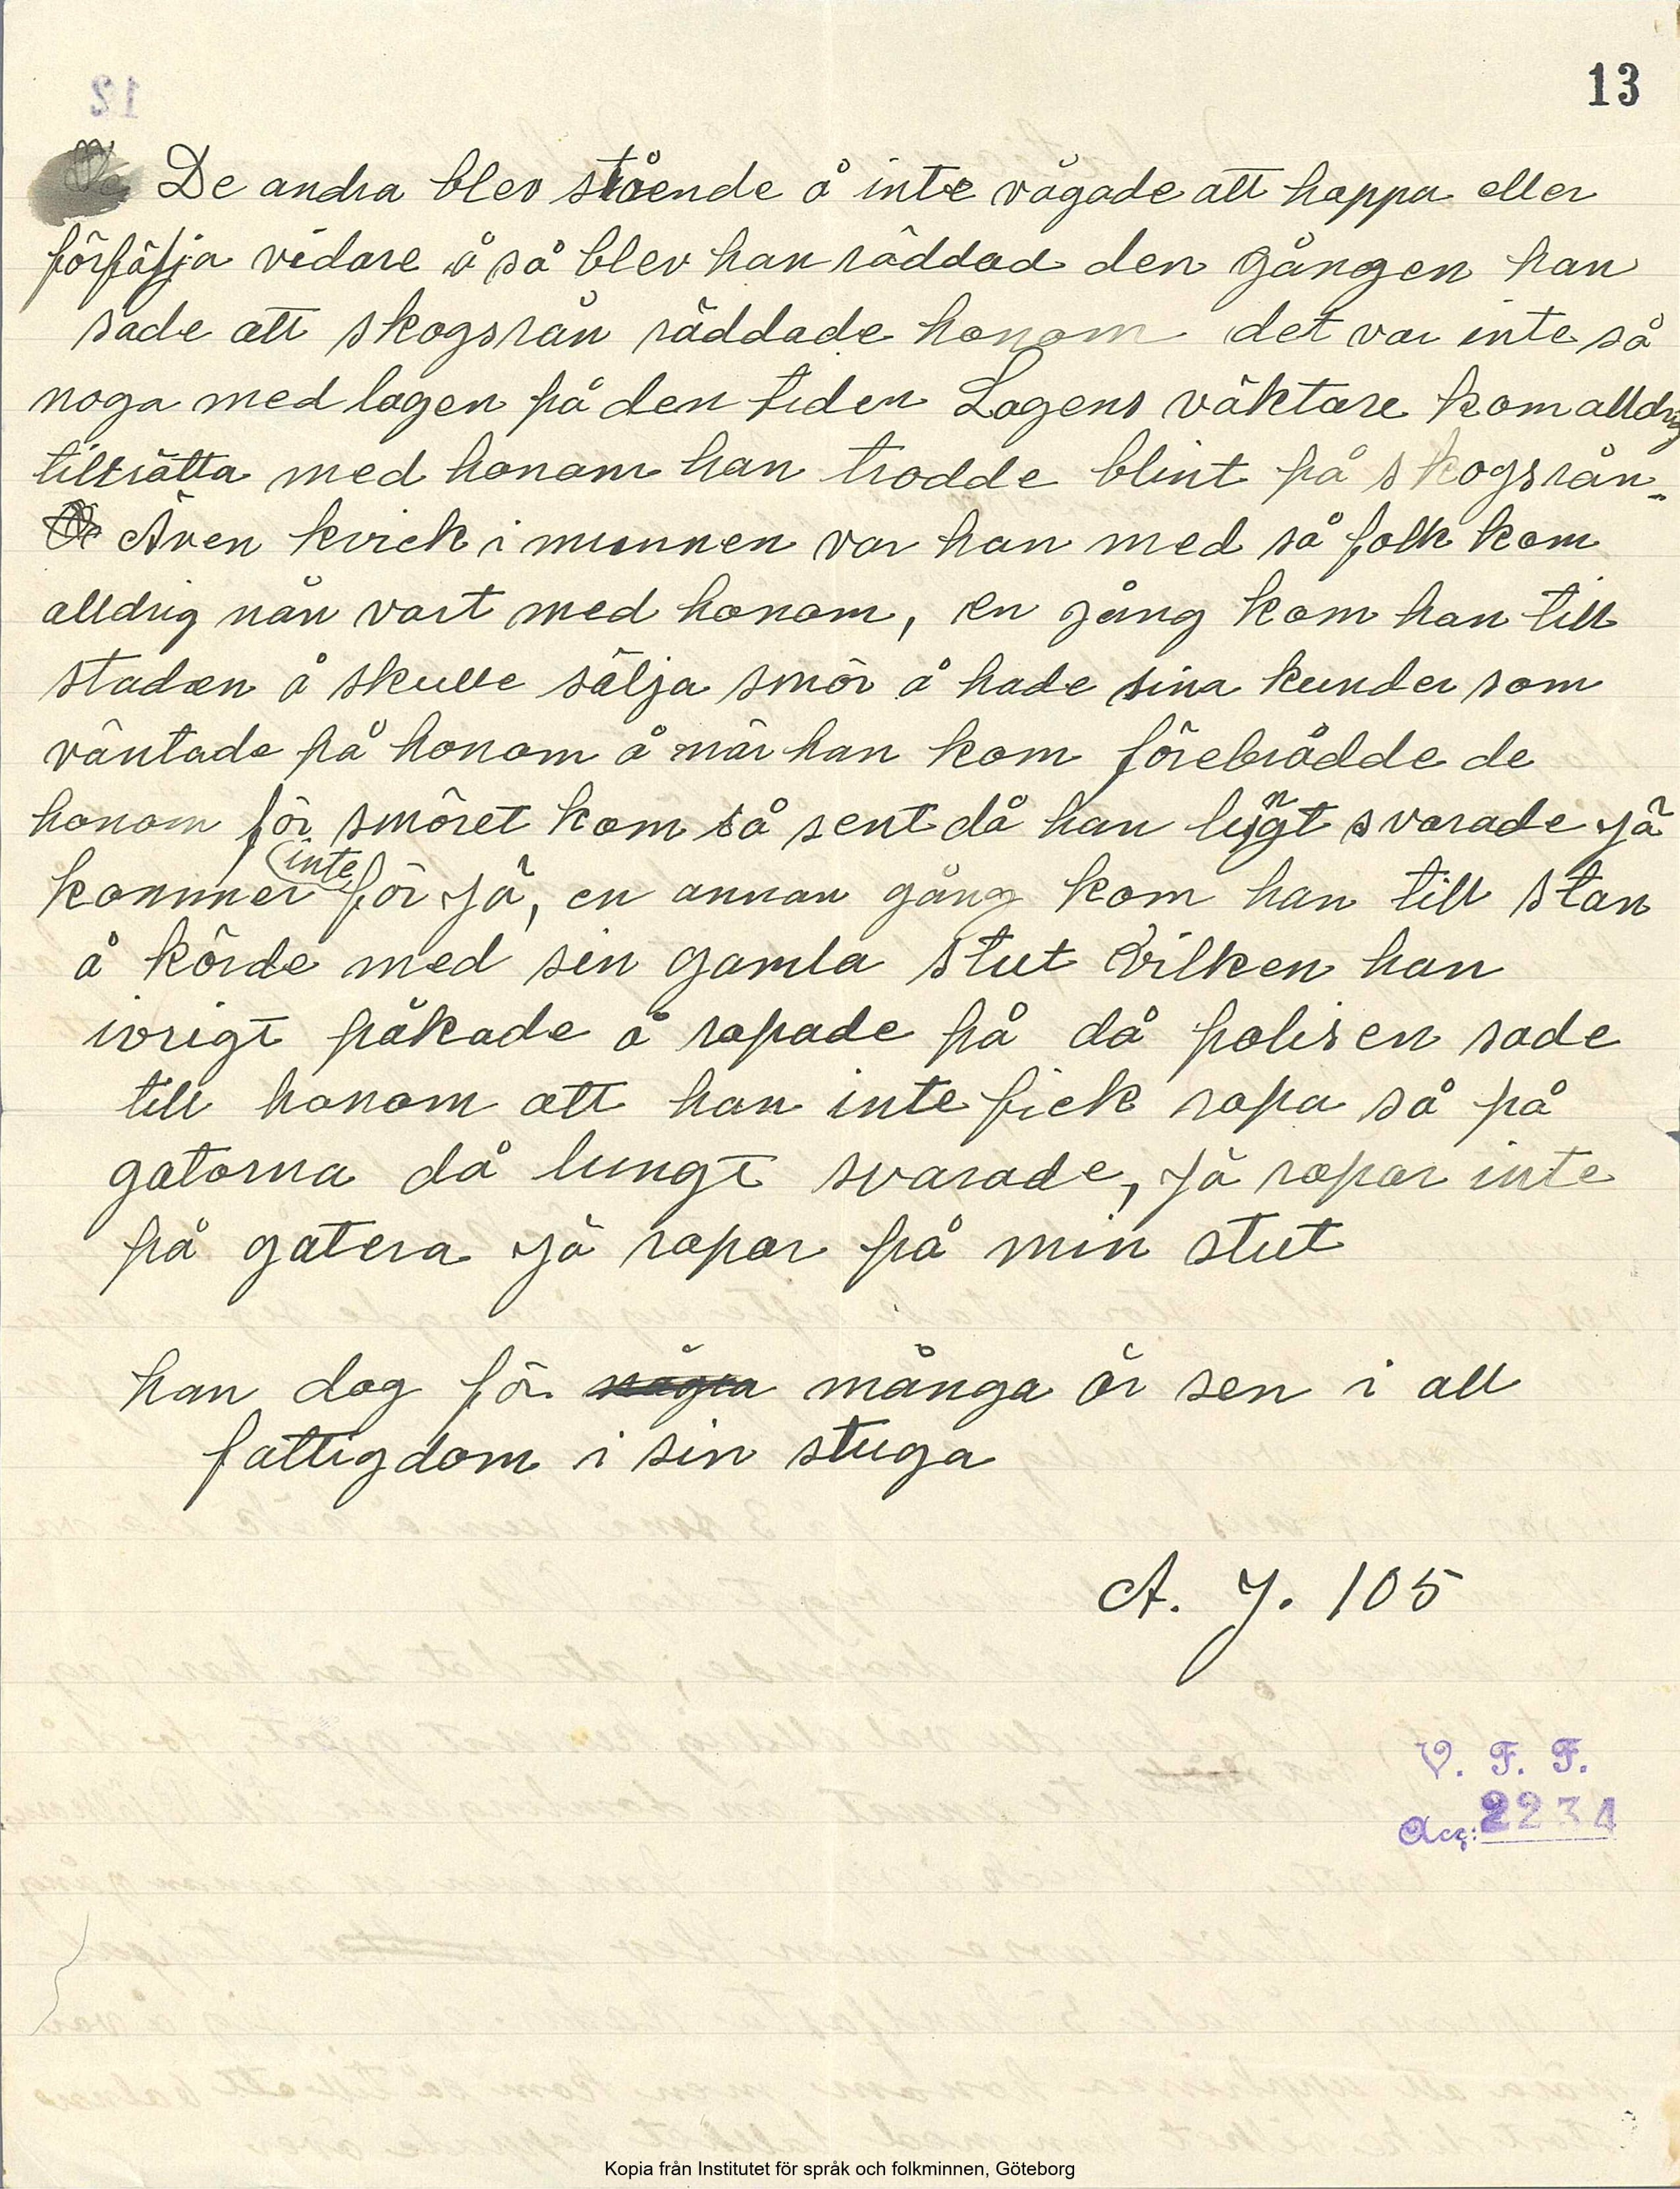 13
De andra blev stående å inte vågade att happa eller
förfälja vidare å så blev han räddad den gången han
sade att skogsrån räddade honom det var inte så
noga med lagen på den tiden Lagens väktare kom alldrig
tillrätta med honom han trodde blint på skogsrån.
Även kvick i munnen var han med så folk kom
alldrig nån vart med honom, en gång kom han till
staden å skulle sälja smör å hade sina kunder som
väntade på honom å när han kom förebrådde de
honom för smöret kom så sent då han lungt svarade jä
kommer inte för jä, en annan gång kom han till stan
å körde med sin gamla stut vilken han
ivrigt påkade å ropade på då polisen sade
till honom att han inte fick ropa så på
gatorna då lungt svarade, jä ropar inte
på gatera jä ropar på min stut
han dog för några många år sen i all
fattigdom i sin stuga
A. J. 105
V. F. F.
Acc: 2234
Kopia från Institutet för språk och folkminnen, Göteborg